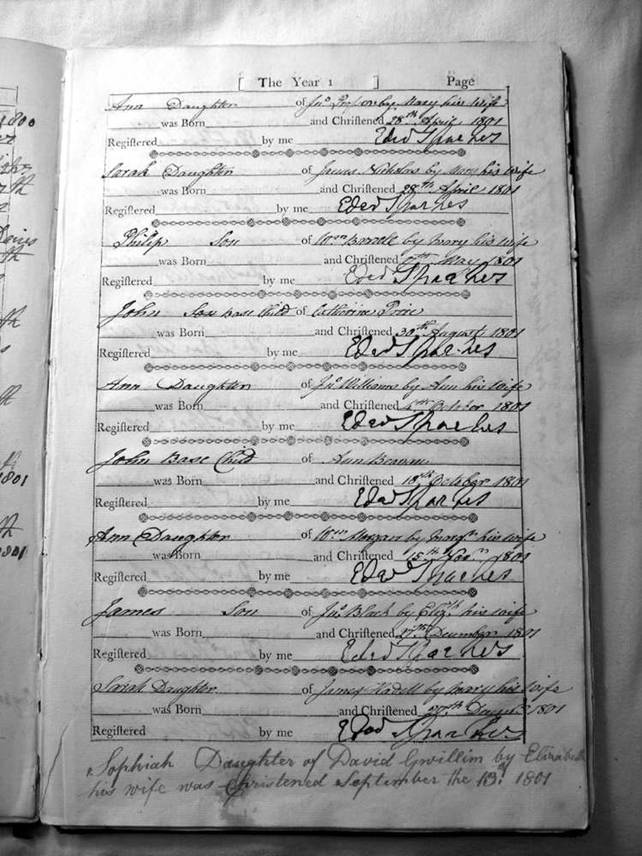 [ The Year 1 ] Page
Ann Daughter of Jnº by Mary his Wife
was Born and Chriſtened 28th April 1801
Regiſtered by me Edwd Sparkes
Sarah Daughter of James Nicholas by Mary his Wife
was Born and Chriſtened 28th April 1801
Regiſtered by me Edwd Sparkes
Philip Son of Wm by Mary his Wife
was Born and Chriſtened May 1801
Regiſtered by me Edwd Sparkes
John Son base Child of Catherine Price
was Born and Chriſtened 30th August 1801
Regiſtered by me Edwd Sparkes
Ann Daughter of Jnº Williams by Ann his Wife
was Born and Chriſtened October 1801
Regiſtered by me Edwd Sparkes
John Base Child of Ann
was Born and Chriſtened 18th October 1801
Regiſtered by me Edwd Sparkes
Ann Daughter of Wm Morgan by his Wife
was Born and Chriſtened 15th Novr 1801
Regiſtered by me Edwd Sparkes
James Son of Jnº Black by Elizth his Wife
was Born and Chriſtened 27th December 1801
Regiſtered by me Edwd Sparkes
Sarah Daughter of James by Mary his Wife
was Born and Chriſtened 27th 1801
Regiſtered by me Edwd Sparkes
Sophiah Daughter of David Gwillim by Elizabeth
his wife was Christened September the 13 1801